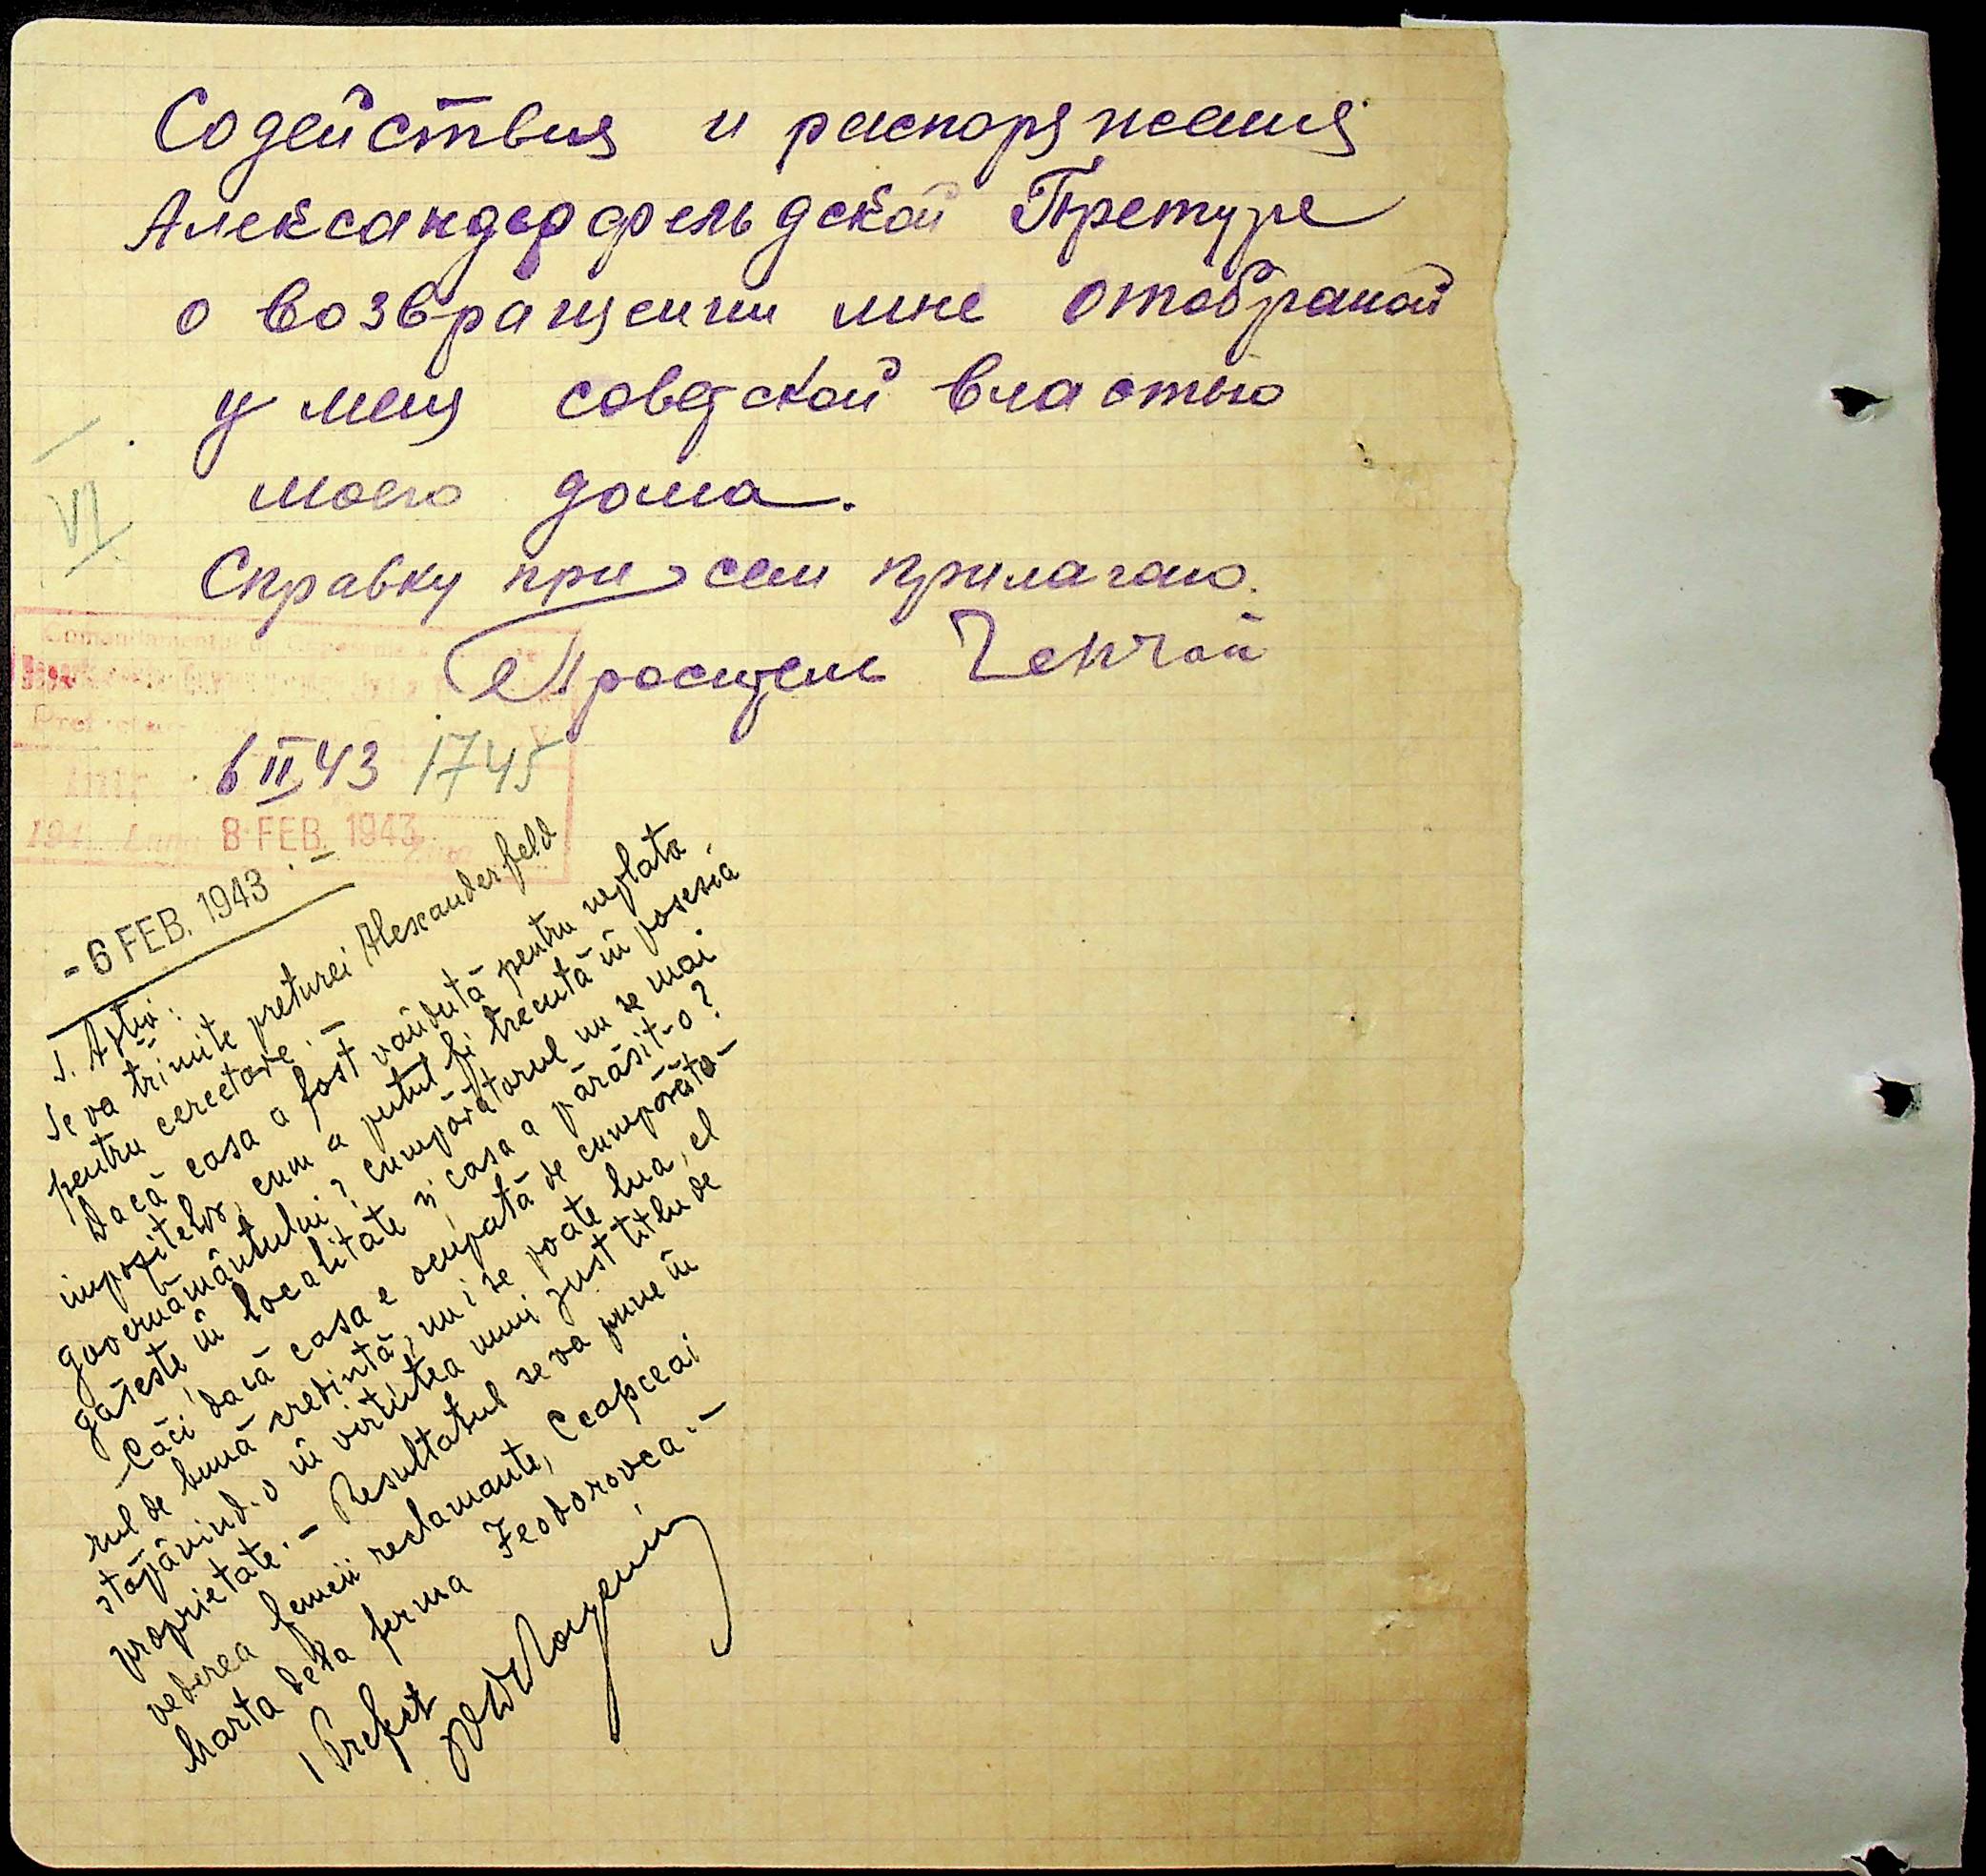 Содействия и распоряжения
Александерфельдской Претуре
о возвращении мне отобраной
у меня советской властью
моего дома.
Справку при сем прилагаю.
Проситель
VI
6 II 43 1745
8 FEB. 1943
- 6 FEB. 1943 . –
Se va trimite preturei Alexanderfeld
pentru cercetare. –
Dacă casa a fost vândută pentru neplata
impozitelor, cum a putut fi trecută în posesia
guvernământului? Cumpărătorul nu se mai
găsește în localitate și casa a părăsit-o?
Căci, dacă casa e ocupată de cumpărăto-
rul de bună credință, nu i se poate lua, el
stăpânind-o în virtutea unui just titlu de
proprietate. – Resultatul se va pune în
vederea femeii reclamante, Ceapceai
Marta dela ferma Feodorovca. –
Prefect